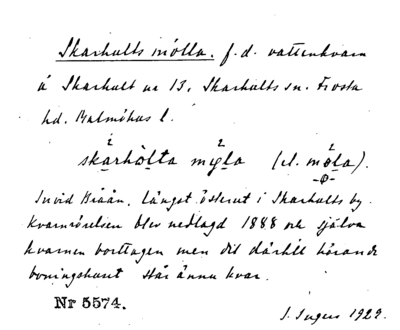 Skarhults mölla. f. d. vattenkvarn
å Skarhult nr 13, Skarhults sn. Frosta
hd. Malmöhus l.
skarhòlta møla (el. möla).
Invid Bråån. Längst österut i Skarhults by.
kvarnrörelsen blev nedlagd 1888 och själva
kvarnen borttagen men det därtill hörande
boningshuset står ännu kvar.
Nr 5574.
I. Ingers 1929.